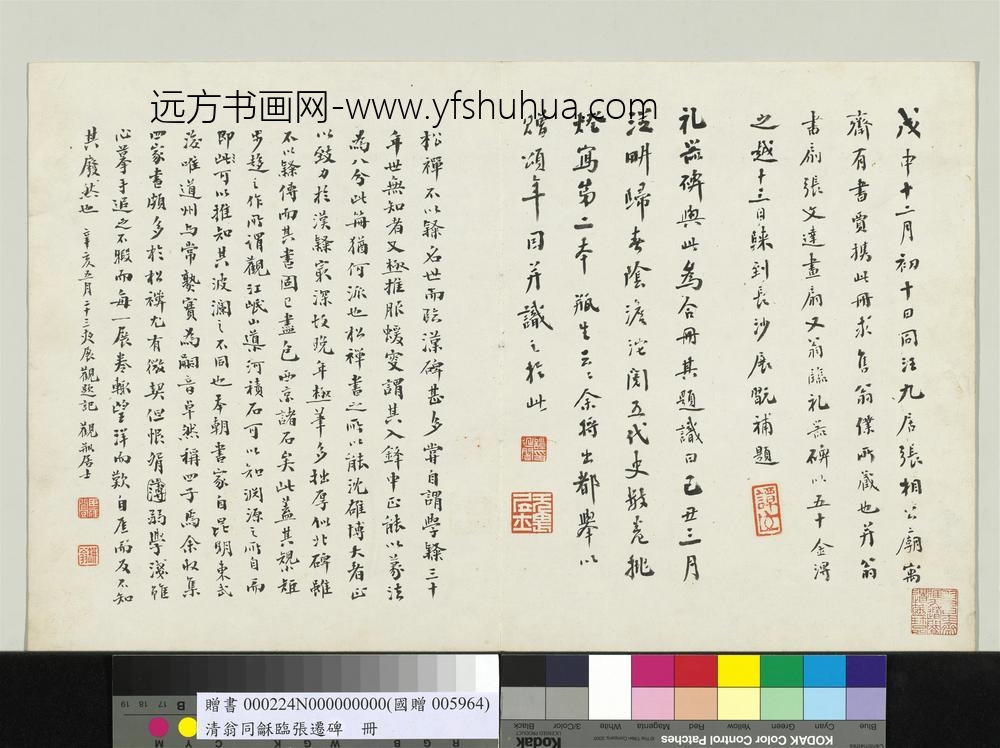 远方书画网-www.yfshuhua.com
戊申十二月初十日同汪九居張相公廟寓
齋有書賈携此冊求售翁僕所藏也并翁
書扇張文達畫扇又翁臨礼器碑以五十金得
之越十三日歸到長沙展翫補題
譚
礼器碑與此為合冊其題識曰己丑三月
歸春陰澹沱閱五代史数卷挑
燈寫第二本瓶生云云余将出都舉以
頌年因并識之於此
松禪不以隸名世而臨漢碑甚多嘗自謂學隸三十
年世無知者又極推服蝯叟謂其入鋒中正能以篆法
為八分此毎猶何派也松禪書之所以能沈雄博大者正
以致力於漢隸寂深故晚年極筆多拙厚似北碑雖
不以隸傳而其書固已盡包西京諸石矣此蓋其規矩
步趨之作所謂觀江岷山導河積石可以知淵源之所自而
即此可以推知其波瀾之不同也本朝書家自昆明東武
後唯道州与常熟實為嗣音卓然稱四子焉余收集
四家書頗多於松禪尤有微契但恨孱弱學淺雖
心摹手追之不暇而每一展卷輒望洋而歎自厓而反不知
其廢然也 辛亥五月二十三夜展觀題記 觀瓶居士
贈書 000224N000000000(國贈 005964)
清翁同龢臨張遷碑 冊
19 18 17
B
M
Black
3/Color
White
Magenta
Red
Yellow
Green
Cyan
Blue
KODAK Color Control Patches